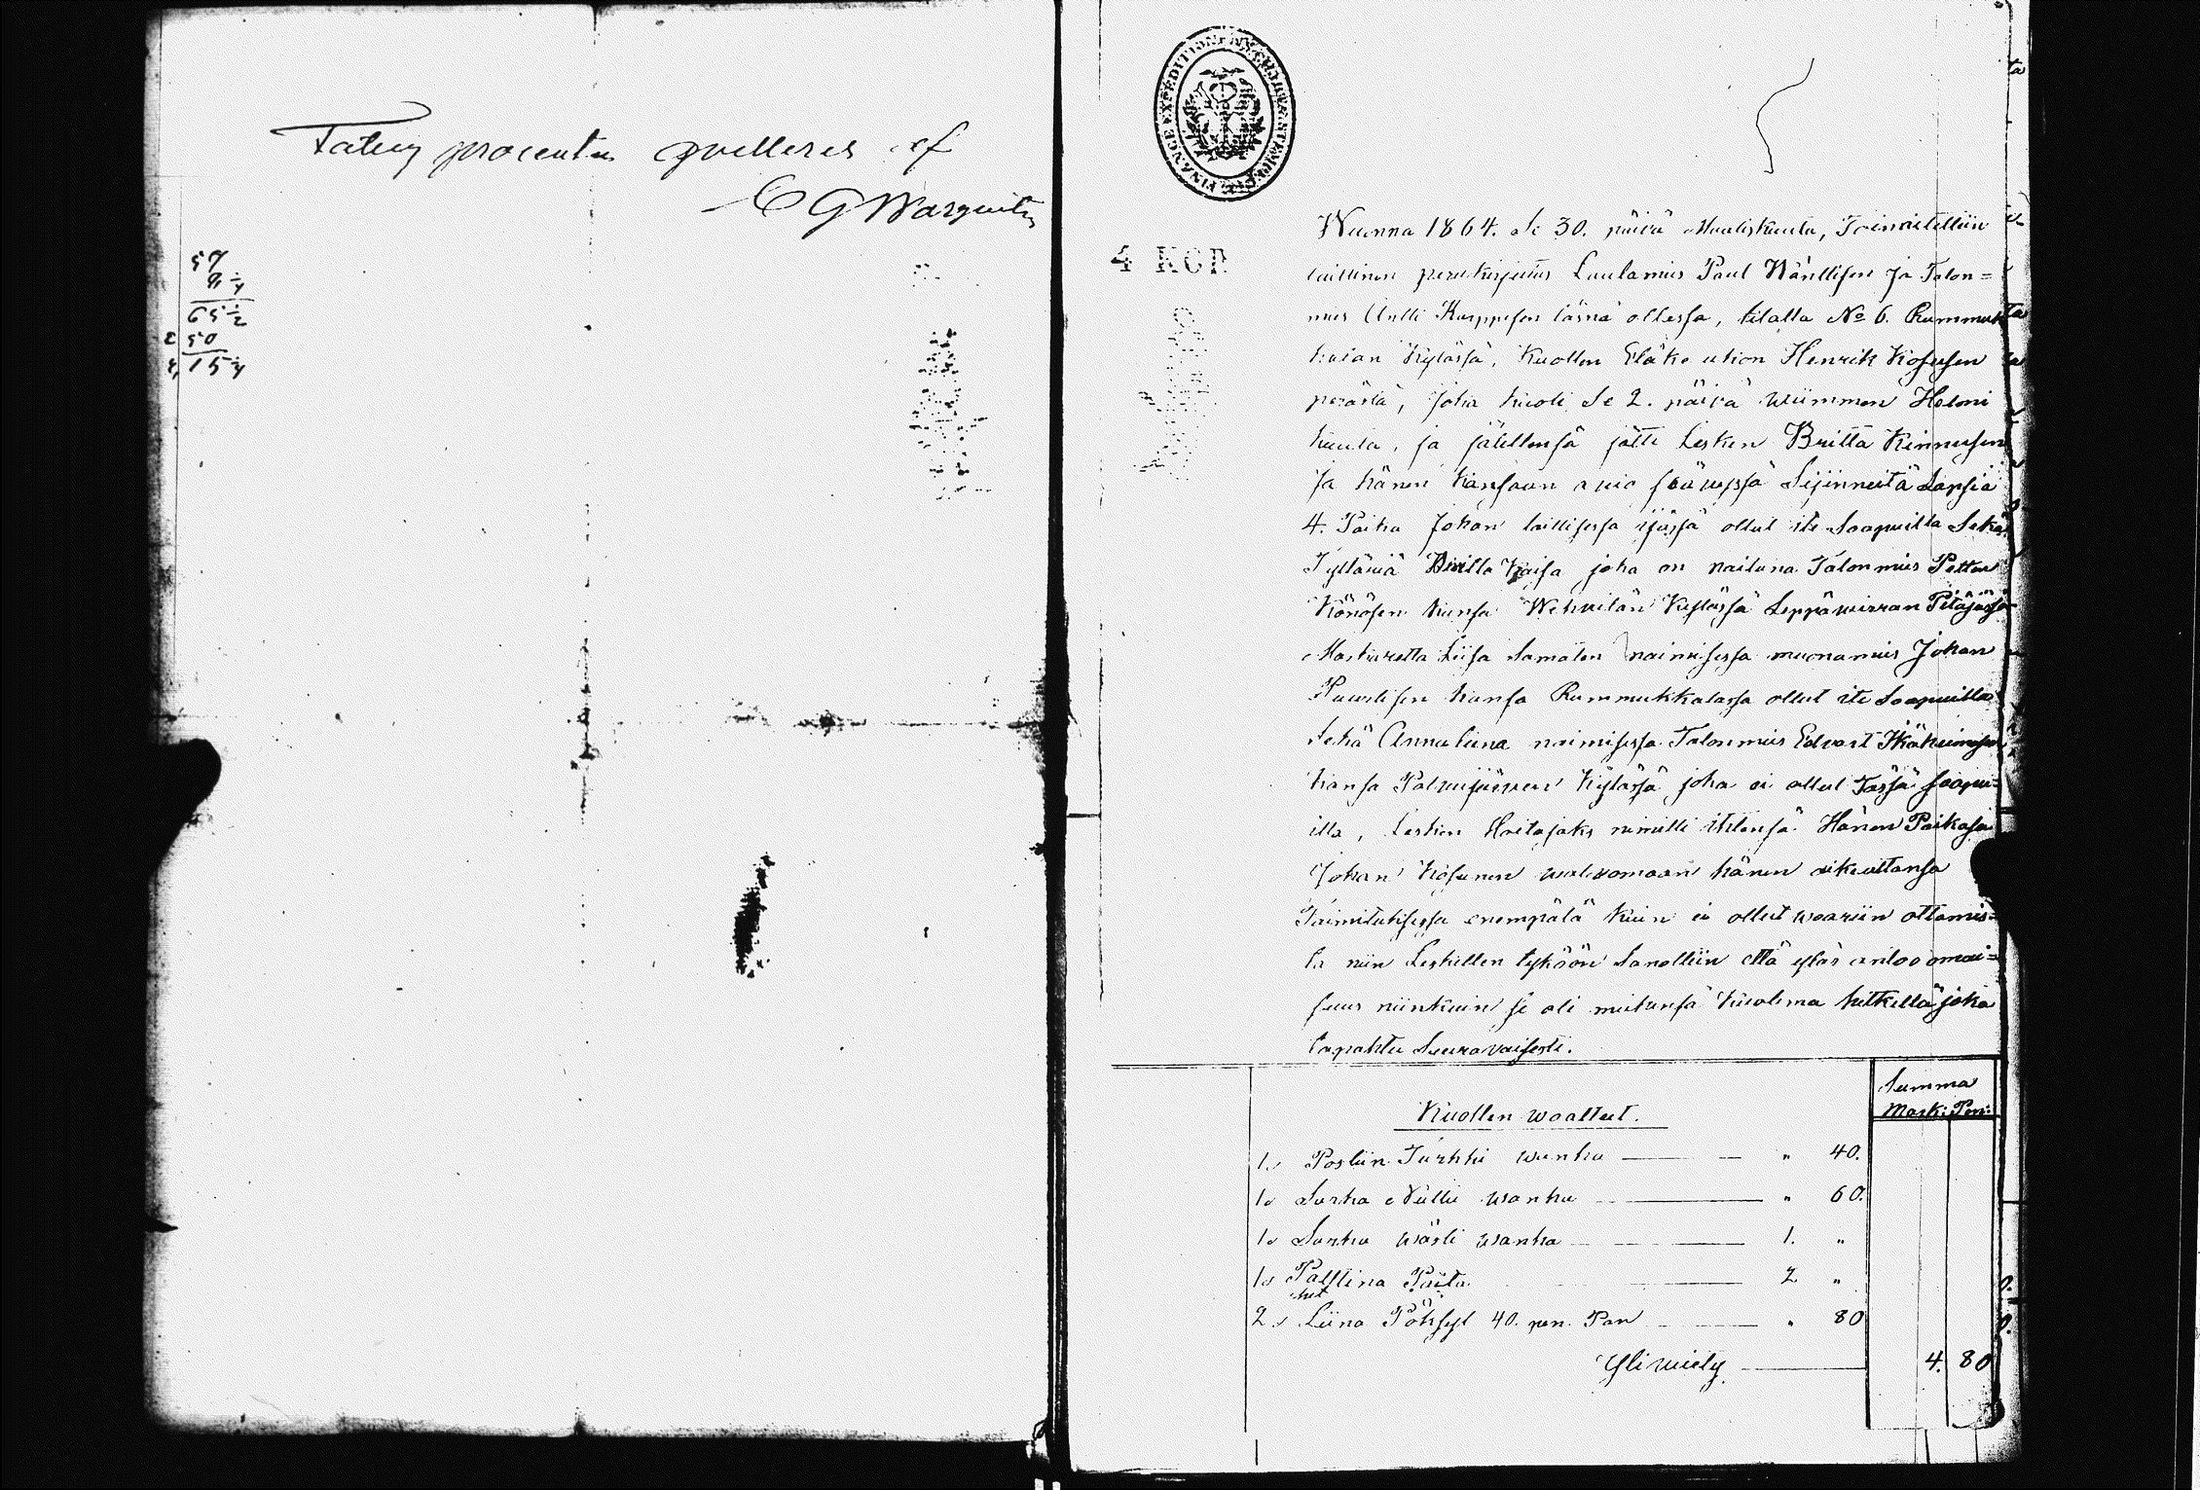 Fattig procenten qvitteres af
C G Warquist
Wuonna 1864. Se 30. päivä Maaliskuuta, Toimitettiin
laillinen perukirjutus Lautamies Paul Wänttisen ja Talon=
mies Antti Karppisen läsnä ollessa, tilalla No 6. Rummuk
kalan Kylässä, Kuollen Eläke ukon Henrik Kosusen
perästä, joka kuoli Se 2. päivä wiimmen Helmi
kuuta, ja jälillensä jätti Lesken Britta Kinnusen
ja hänen Kansaan avio säävyssä Sijinneitä Lapsia
4. Poika Johan laillisessa ijässä ollut ite Saapuilla Sekä
Tyttäriä Britta Kaisa joka on naituna Talonmies Petter
Könösen kansa Wehvilän Kylässä Leppäwirran Pitäjässä
Markaretta Liisa Samaten naimisessa muonamies Johan
Huuslisen kansa Rummukkalassa ollut ite Saapuilla
Sekä Annaliina naimisessa Talonmies Edvart Ikäheimosen
kansa Palvijärven Kylässä joka ei ollut Tässä saapu=
illa, Lesken Hoitajaks nimitti ihtensä Hänen Poikasa
Johan Kosunen walvomaan hänen oikeuttansa
Toimituksessa enempätä kuin ei ollut waariin ottamis=
ta niin Leskellen tyköön Sanottiin että ylös antaa omai=
suus niinkuin se oli miehensä kuolema hetkellä joka
tapahtu Seuravaisesti.
Summa
Mark: Pen:
Kuollen waatteet.
1. Posliin Turkki wanha " 40.
1. Sarka Nuttu wanha " 60.
1. Sarka wästi wanha 1. "
1. Palttina Paita 2 "
het
2. Liina Pöksyt 40. pen. Par " 80
Yliwiety 4. 80